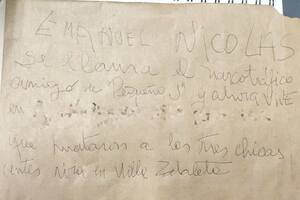 EMANUEL NICOLAS
se llama el narcotrafico
amigo de Pequeño J y ahora VIVE
en
que mataron a las tres chicas
antes vivia en Villa Zabaleta